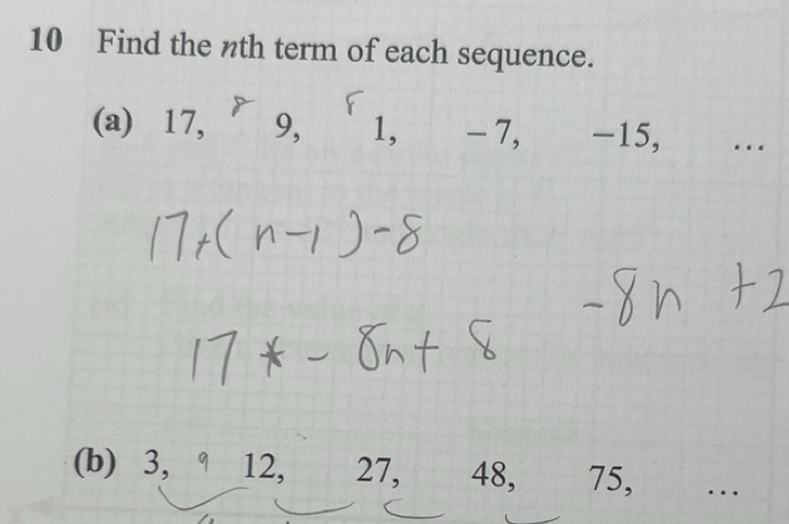 10 Find the nth term of each sequence.
(a) 17, 8 9, 8 1, –7, –15, ...
17+(n-1)-8
-8n +2
17 * - 8n+ 8
(b) 3, 9 12, 27, 48, 75, ...